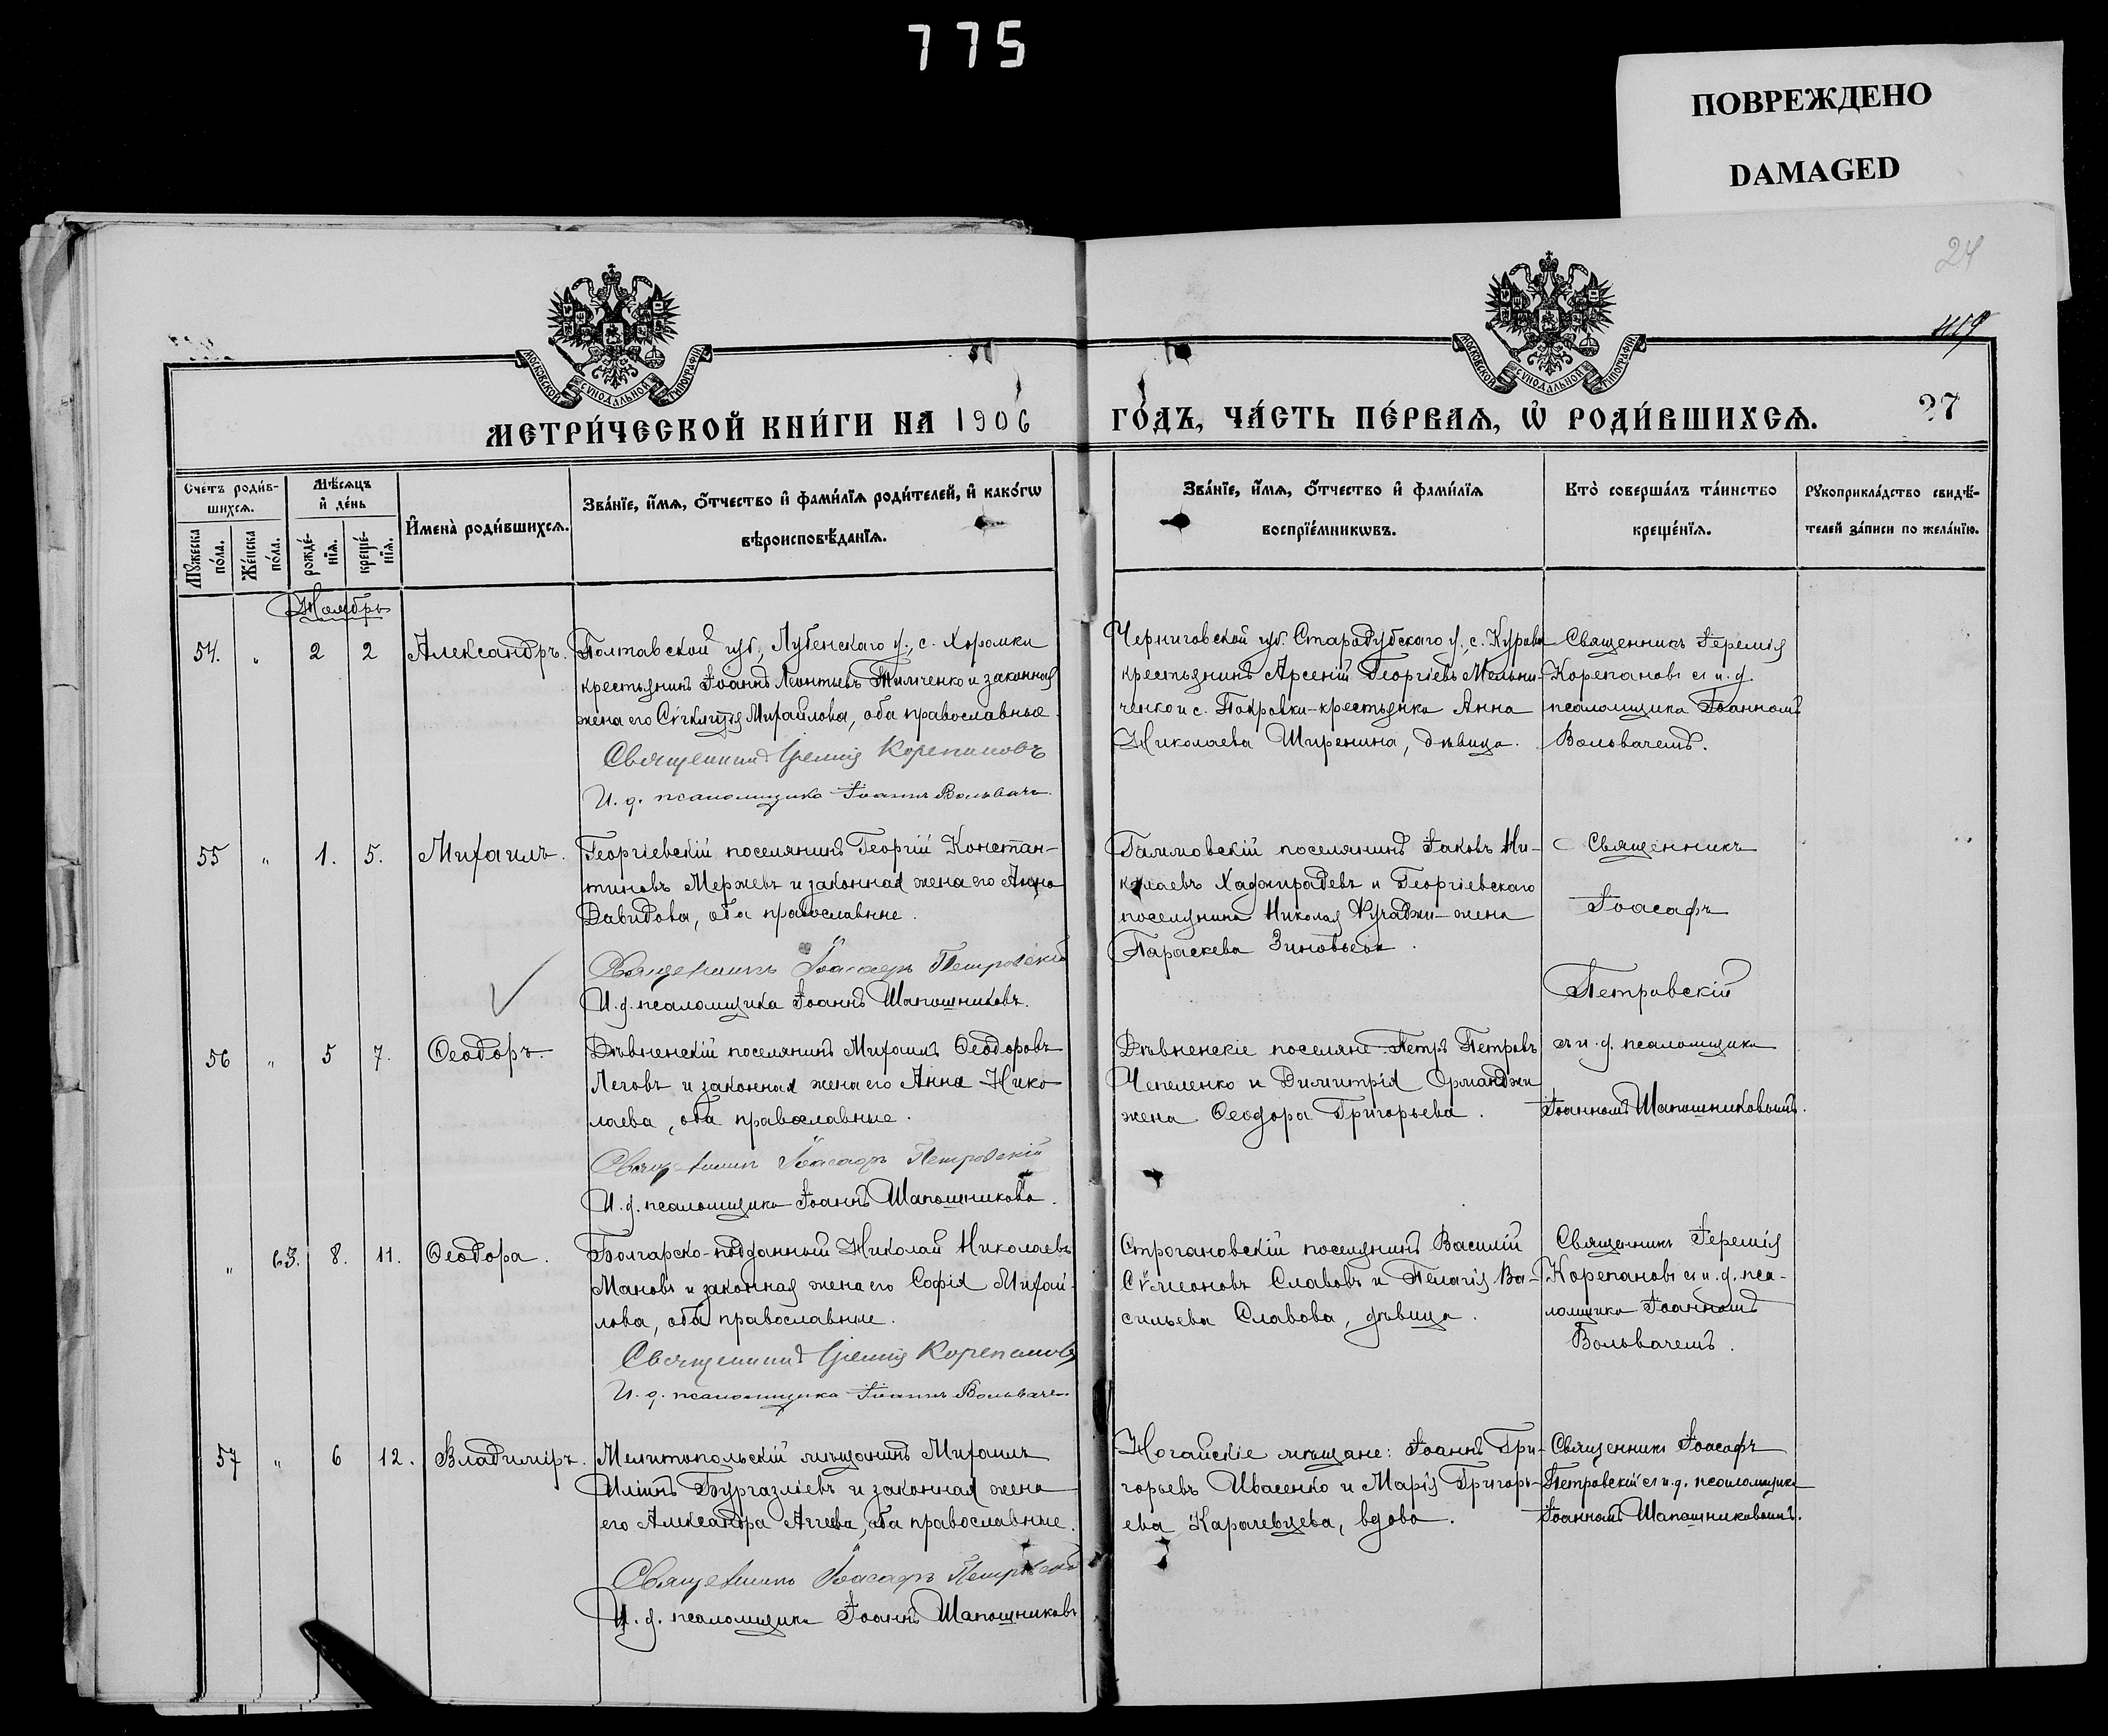 775
ПОВРЕЖДЕНО
DAMAGED
24
МОСКОВСКОЙ СѴНОДАЛЬНОЙ ТИПОГРАФІИ
МОСКОВСКОЙ СѴНОДАЛЬНОЙ ТИПОГРАФІИ
МЕТРИ́ЧЕСКОЙ КНИ́ГИ НА 1906
ГО́ДЪ, ЧА́СТЬ ПЕ́РВАѦ, Ѡ҆ РОДИ́ВШИХСѦ.
27
Сче́тъ роди́в-
шихсѧ.
Мꙋ́жеска по́ла.
Же́нска по́ла.
Мѣ́сѧцъ
и҆ де́нь
рожде́-
нїѧ.
креще́-
нїѧ.
И҆мена̀ роди́вшихсѧ.
Зва́нїе, и҆́мѧ, ѻ҆́тчество и҆ фами́лїѧ роди́телей, и҆ како́гѡ
вѣроисповѣ́данїѧ.
Зва́нїе, и҆́мѧ, ѻ҆́тчество и҆ фами́лїѧ
воспрїе́мникѡвъ.
Кто̀ соверша́лъ та́инство
креще́нїѧ.
Рꙋкоприкла́дство свидѣ́-
телей за́писи по жела́нїю.
Ноябрь
54. „ 2 2 Александръ.
Полтавской губ., Лубенскаго у., с. Хоромки
крестьянинъ Іоаннъ Леонтьевъ Тимченко и законная
жена его Сѵнклитія Михайлова, оба православные
Священникъ Іеремія Корепановъ
И. д. псаломщика Іоаннъ Вольвачъ.
Черниговской губ. Стародубскаго у., с. Курови
крестьянинъ Арсеній Георгіевъ Мельни-
ченко и с. Покровки - крестьянка Анна
Николаева Ширенина, дѣвица.
Священникъ Іеремія
Корепановъ съ и. д.
псаломщика Іоанномъ
Вольвачемъ.
55 „ 1. 5. Михаилъ.
Георгіевскій поселянинъ Георгій Констан-
тиновъ Мержевъ и законная жена его Анна
Давидова, оба православные.
Священникъ Іоасафъ Петровскій
И. д. псаломщика Іоаннъ Шапошниковъ.
Гаммовскій поселянинъ Іаковъ Ни-
колаевъ Хаджирадевъ и Георгіевскаго
поселянина Николая Кучаджи - жена
Параскева Зиновьева.
Священникъ
Іоасафъ
Петровскій
56 „ 5 7. Ѳеодоръ.
Дѣвненскій поселянинъ Михаилъ Ѳеодоровъ
Леговъ и законная жена его Анна Нико
лаева, оба православные.
Священникъ Іоасафъ Петровскій
И. д. псаломщика Іоаннъ Шапошниковъ.
Дѣвненскіе поселяне Петръ Петровъ
Чепеленко и Димитрія Орманджи
жена Ѳеодора Григорьева.
съ и. д. псаломщика
Іоанномъ Шапошниковымъ.
„ 63. 8. 11. Ѳеодора.
Болгарско-подданный Николай Николаевъ
Мановъ и законная жена его Софія Михай-
лова, оба православные.
Священникъ Іеремія Корепановъ
И. д. псаломщика Іоаннъ Вольвачъ
Строгановскій поселянинъ Василій
Сѵмеоновъ Славовъ и Пелагія Ва-
сильева Славова, дѣвица.
Священникъ Іеремія
Корепановъ съ и. д. пса-
ломщика Іоанномъ
Вольвачемъ.
57 „ 6 12. Владиміръ.
Мелитопольскій мѣщанинъ Михаилъ
Иліинъ Бургазліевъ и законная жена
его Александра Агеева, оба православные.
Священникъ Іоасафъ Петровскій
И. д. псаломщика Іоаннъ Шапошниковъ
Ногайскіе мѣщане: Іоаннъ Гри-
горьевъ Ивасенко и Марія Григорь-
ева Карачевцева, вдова.
Священникъ Іоасафъ
Петровскій съ и. д. псаломщика
Іоанномъ Шапошниковымъ.